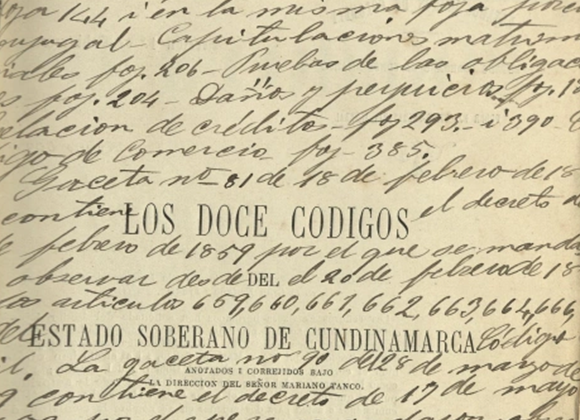 foja 144 i en la misma foja
conyugal - Capitulaciones matrimo
niales foj. 206 - Pruebas de las obligac
foj. 204 - Daños y perjuicios foj.
elacion de crédito - foj 293. - i 390 -
igo de Comercio foj - 385.
Gaceta nº 81 de 18 de febrero de 18
contiene el decreto de
LOS DOCE CODIGOS
febrero de 1859 por el que se manda
observar desde el 20 de febrero de 18
DEL
los articulos 659, 660, 661, 662, 663, 664, 666,
del Código
ESTADO SOBERANO DE CUNDINAMARCA
La gaceta nº 90 del 28 de marzo de
ANOTADOS I CORREJIDOS BAJO
LA DIRECCION DEL SEÑOR MARIANO TANCO.
contiene el decreto de 17 de marzo